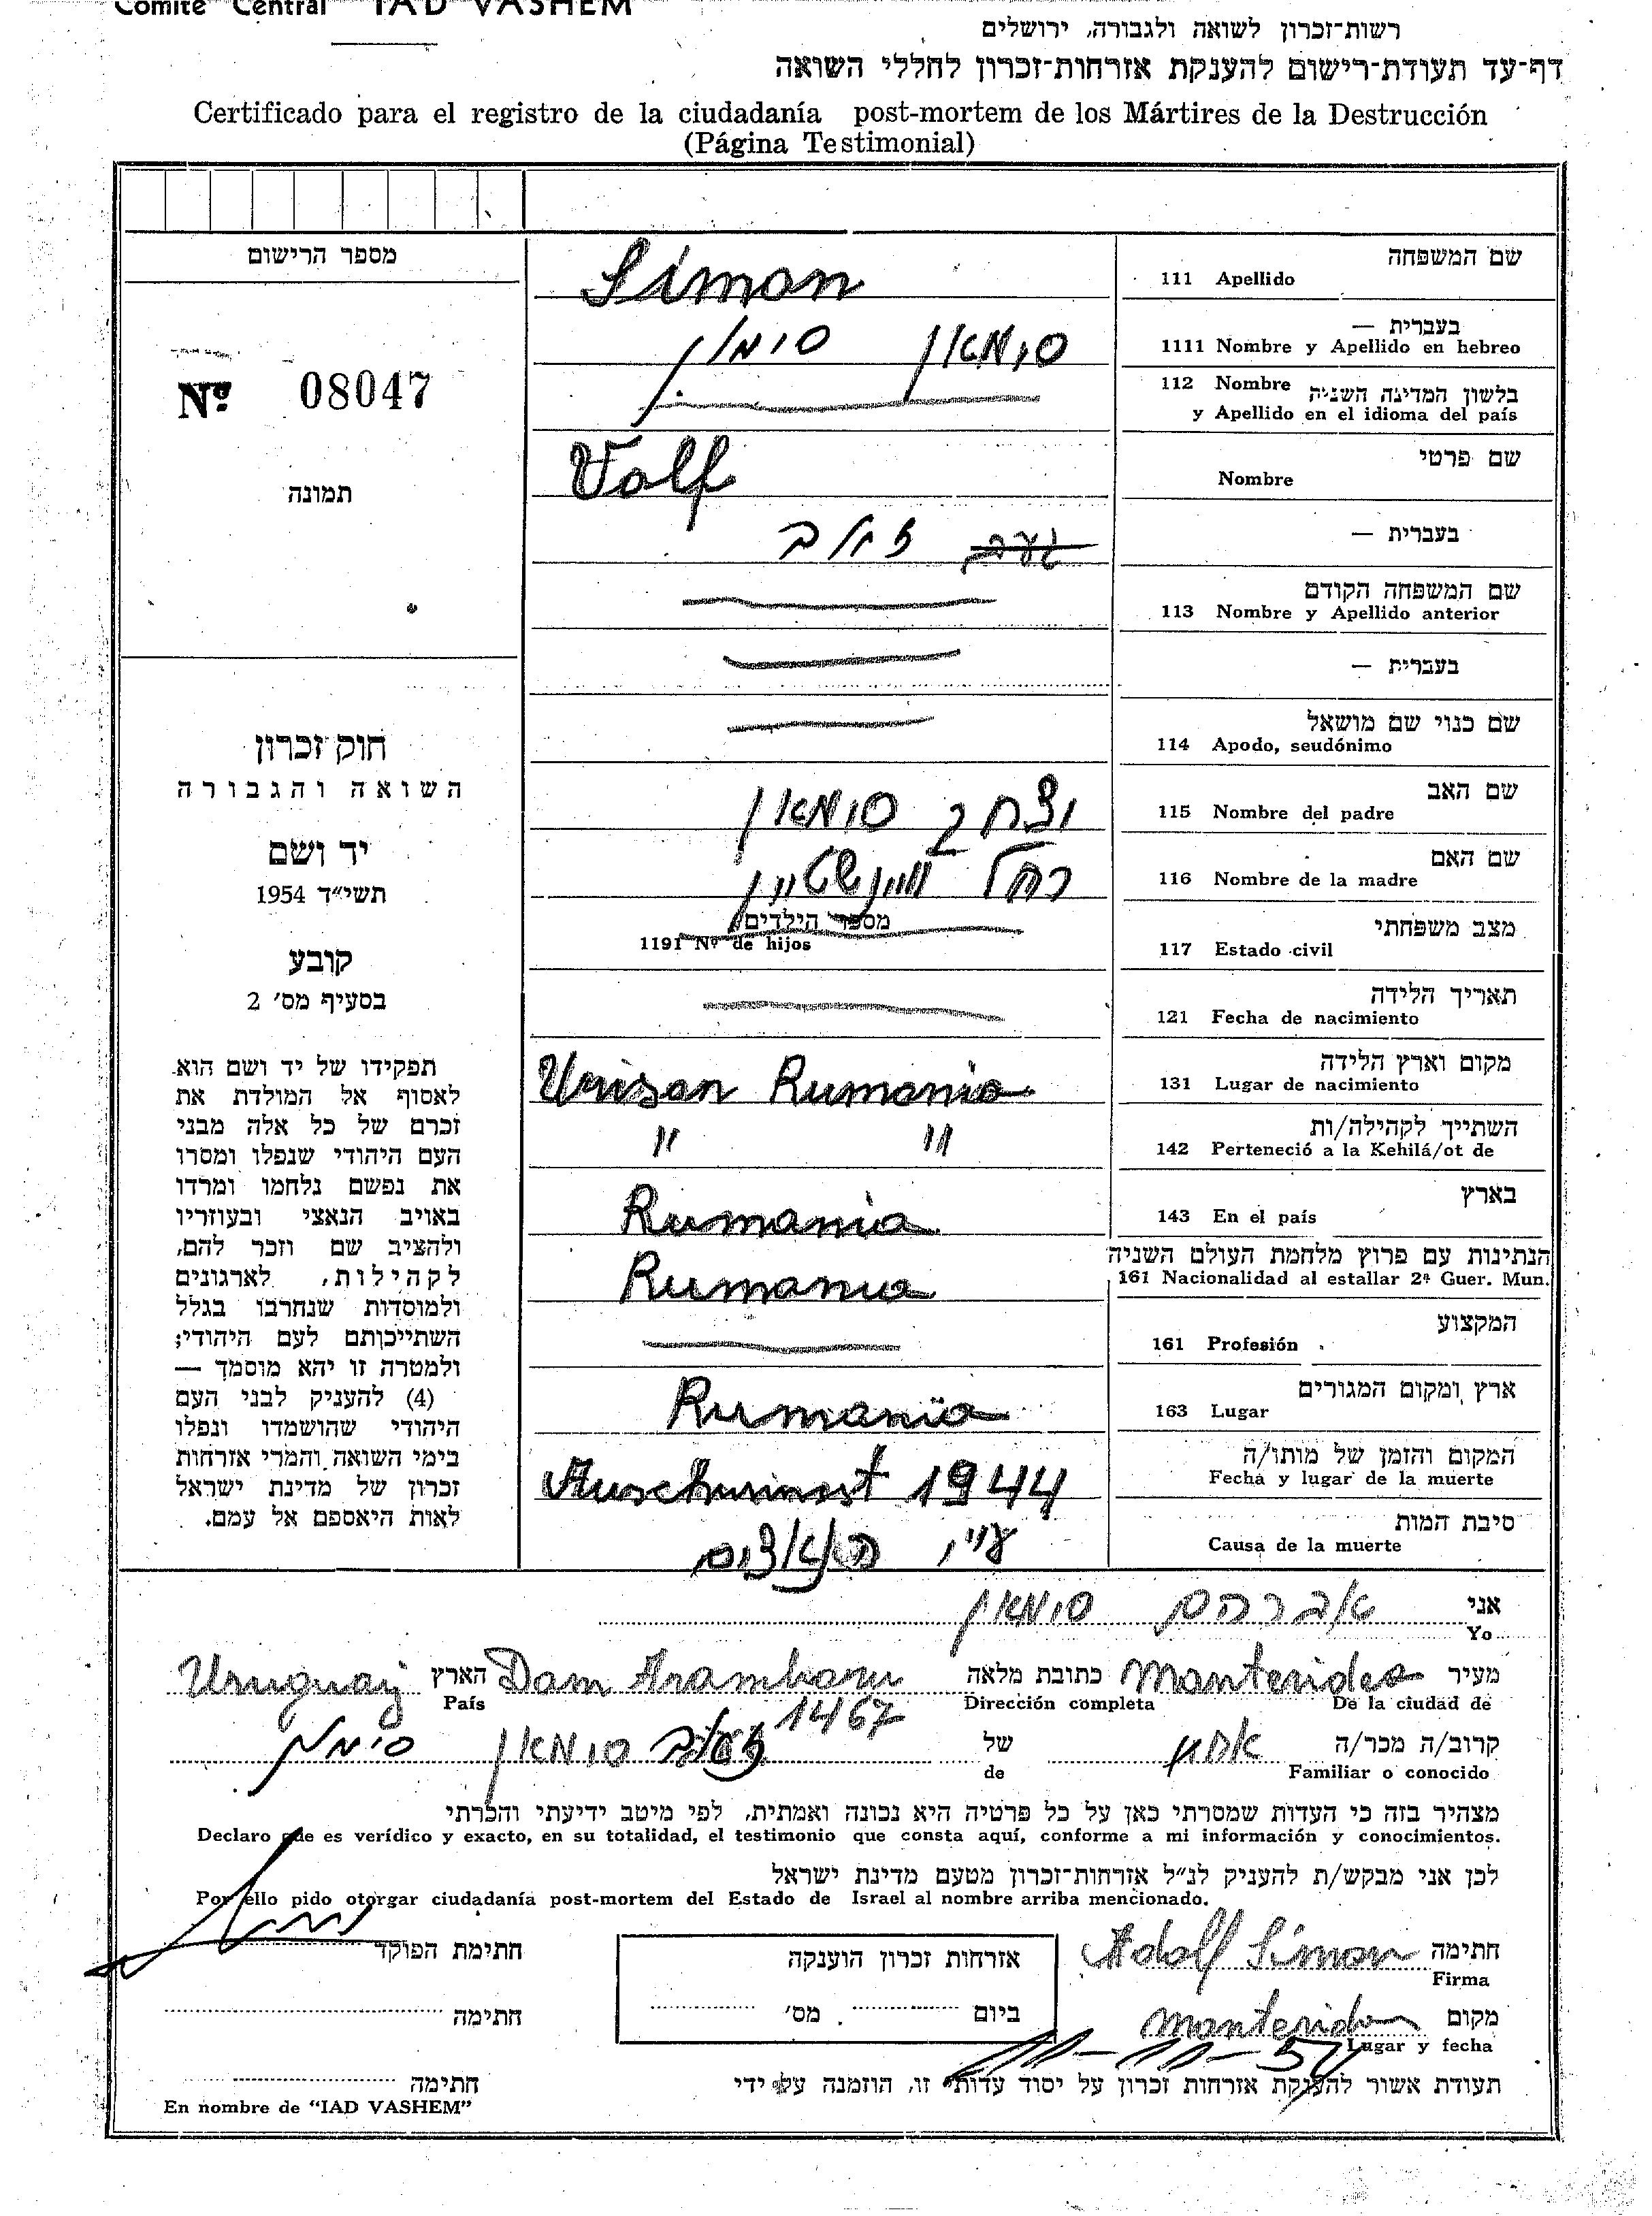 Comité Central IAD VASHEM
רשות־זכרון לשואה ולגבורה, ירושלים
דף־עד תעודת־רישום להענקת אזרחות־זכרון לחללי השואה
Certificado para el registro de la ciudadanía post-mortem de los Mártires de la Destrucción
(Página Testimonial)
מספר הרישום
Nº 08047
תמונה
חוק זכרון
השואה והגבורה
יד ושם
תשי״ד 1954
קובע
בסעיף מס׳ 2
תפקידו של יד ושם הוא
לאסוף אל המולדת את
זכרם של כל אלה מבני
העם היהודי שנפלו ומסרו
את נפשם נלחמו ומרדו
באויב הנאצי ובעוזריו
ולהציב שם וזכר להם,
לקהילות, לארגונים
ולמוסדות שנחרבו בגלל
השתייכותם לעם היהודי;
ולמטרה זו יהא מוסמך —
(4) להעניק לבני העם
היהודי שהושמדו ונפלו
בימי השואה והמרי אזרחות
זכרון של מדינת ישראל
לאות היאספם אל עמם.
שם המשפחה
111 Apellido Simon
בעברית —
1111 Nombre y Apellido en hebreo סימאן סימן
112 Nombre בלשון המדינה השניה
y Apellido en el idioma del país
שם פרטי
Nombre Volf
בעברית — זולב
שם המשפחה הקודם
113 Nombre y Apellido anterior
בעברית —
שם כנוי שם מושאל
114 Apodo, seudónimo
שם האב
115 Nombre del padre יצחק סימאן
שם האם
116 Nombre de la madre רחל ווינשטיין
מצב משפחתי
117 Estado civil
מספר הילדים
1191 Nº de hijos
תאריך הלידה
121 Fecha de nacimiento
מקום וארץ הלידה
131 Lugar de nacimiento Unisan Rumania
השתייך לקהילה/ות
142 Perteneció a la Kehilá/ot de " "
בארץ
143 En el país Rumania
הנתינות עם פרוץ מלחמת העולם השניה
161 Nacionalidad al estallar 2ª Guer. Mun. Rumania
המקצוע
161 Profesión
ארץ ומקום המגורים
163 Lugar Rumania
המקום והזמן של מותו/ה
Fecha y lugar de la muerte Auschwinst 1944
סיבת המות
Causa de la muerte ע״י הנאצים
אני אברהם סימאן
Yo
מעיר Montevideo כתובת מלאה Dam Aramburu 1467 הארץ Uruguay
De la ciudad de Dirección completa País
קרוב/ה מכר/ה אחיו של סימאן סימן
Familiar o conocido de
מצהיר בזה כי העדות שמסרתי כאן על כל פרטיה היא נכונה ואמתית, לפי מיטב ידיעתי והכרתי
Declaro que es verídico y exacto, en su totalidad, el testimonio que consta aquí, conforme a mi información y conocimientos.
לכן אני מבקש/ת להעניק לנ״ל אזרחות־זכרון מטעם מדינת ישראל
Por ello pido otorgar ciudadanía post-mortem del Estado de Israel al nombre arriba mencionado.
חתימה Adolf Simon
Firma
אזרחות זכרון הוענקה
ביום מס׳
חתימת הפוקד
חתימה
מקום Montevideo
Lugar y fecha
תעודת אשור להענקת אזרחות זכרון על יסוד עדות זו, הוזמנה על ידי
חתימה
En nombre de “IAD VASHEM”